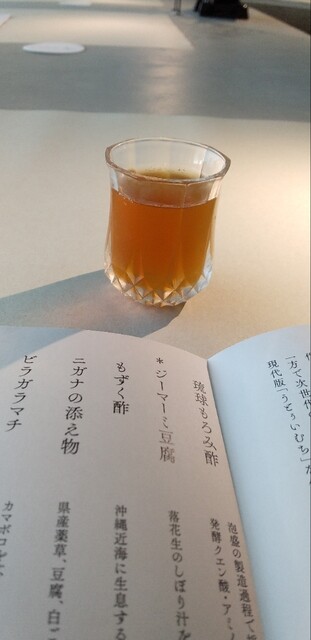 一方で次世代
現代版「うとぅいむち」
琉球もろみ酢
泡盛の製造過程で
発酵クエン酸・アミ
*ジーマーミ豆腐
落花生のしぼり汁を
もずく酢
沖縄近海に生息する
ニガナの添え物
県産薬草、豆腐、白
ビラガラマチ
カマボコと